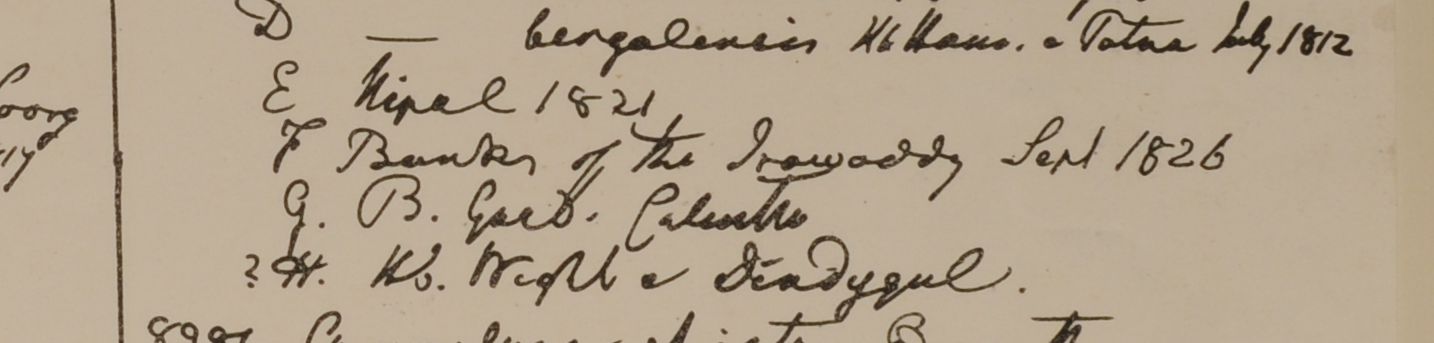 D — bengalensis Hb Ham. e Patna July 1812
E Nipal 1821
F Banks of the Irawaddy Sept 1826
G. B. Gard. Calcutta
?H. Hb. Wight e Dindygul.